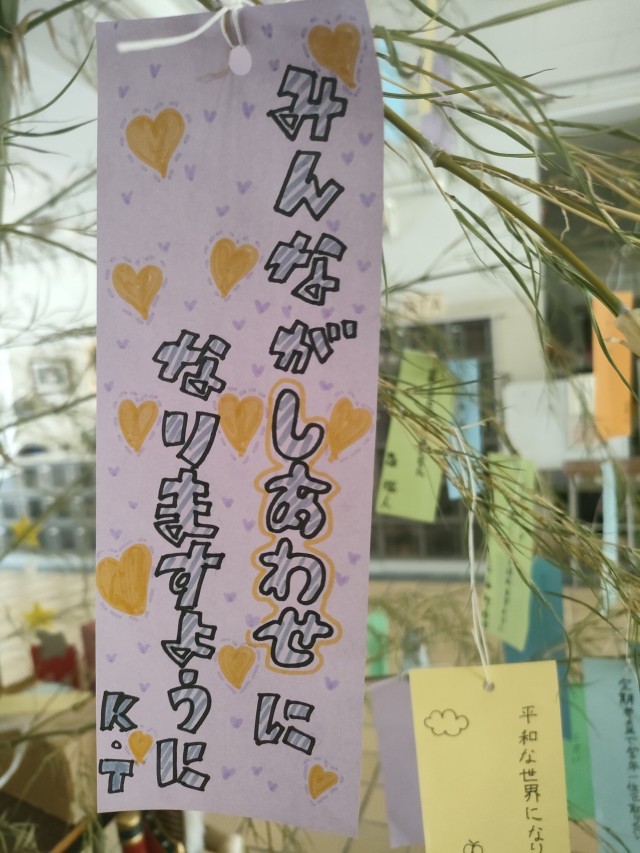 みんながしあわせに
なりますように
K.T
平和な世界になり